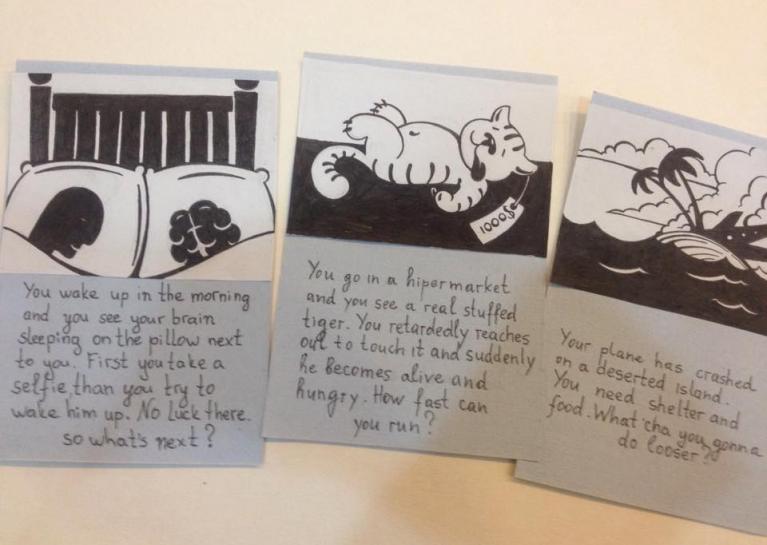 You wake up in the morning
and you see your brain
sleeping on the pillow next
to you. First you take a
selfie, than you try to
wake him up. No luck there.
so what's next?
1000$
You go in a hipermarket
and you see a real stuffed
tiger. You retardedly reaches
out to touch it and suddenly
he becomes alive and
hungry. How fast can
you run?
Your plane has crashed
on a deserted island.
You need shelter and
food. What'cha you gonna
do looser?